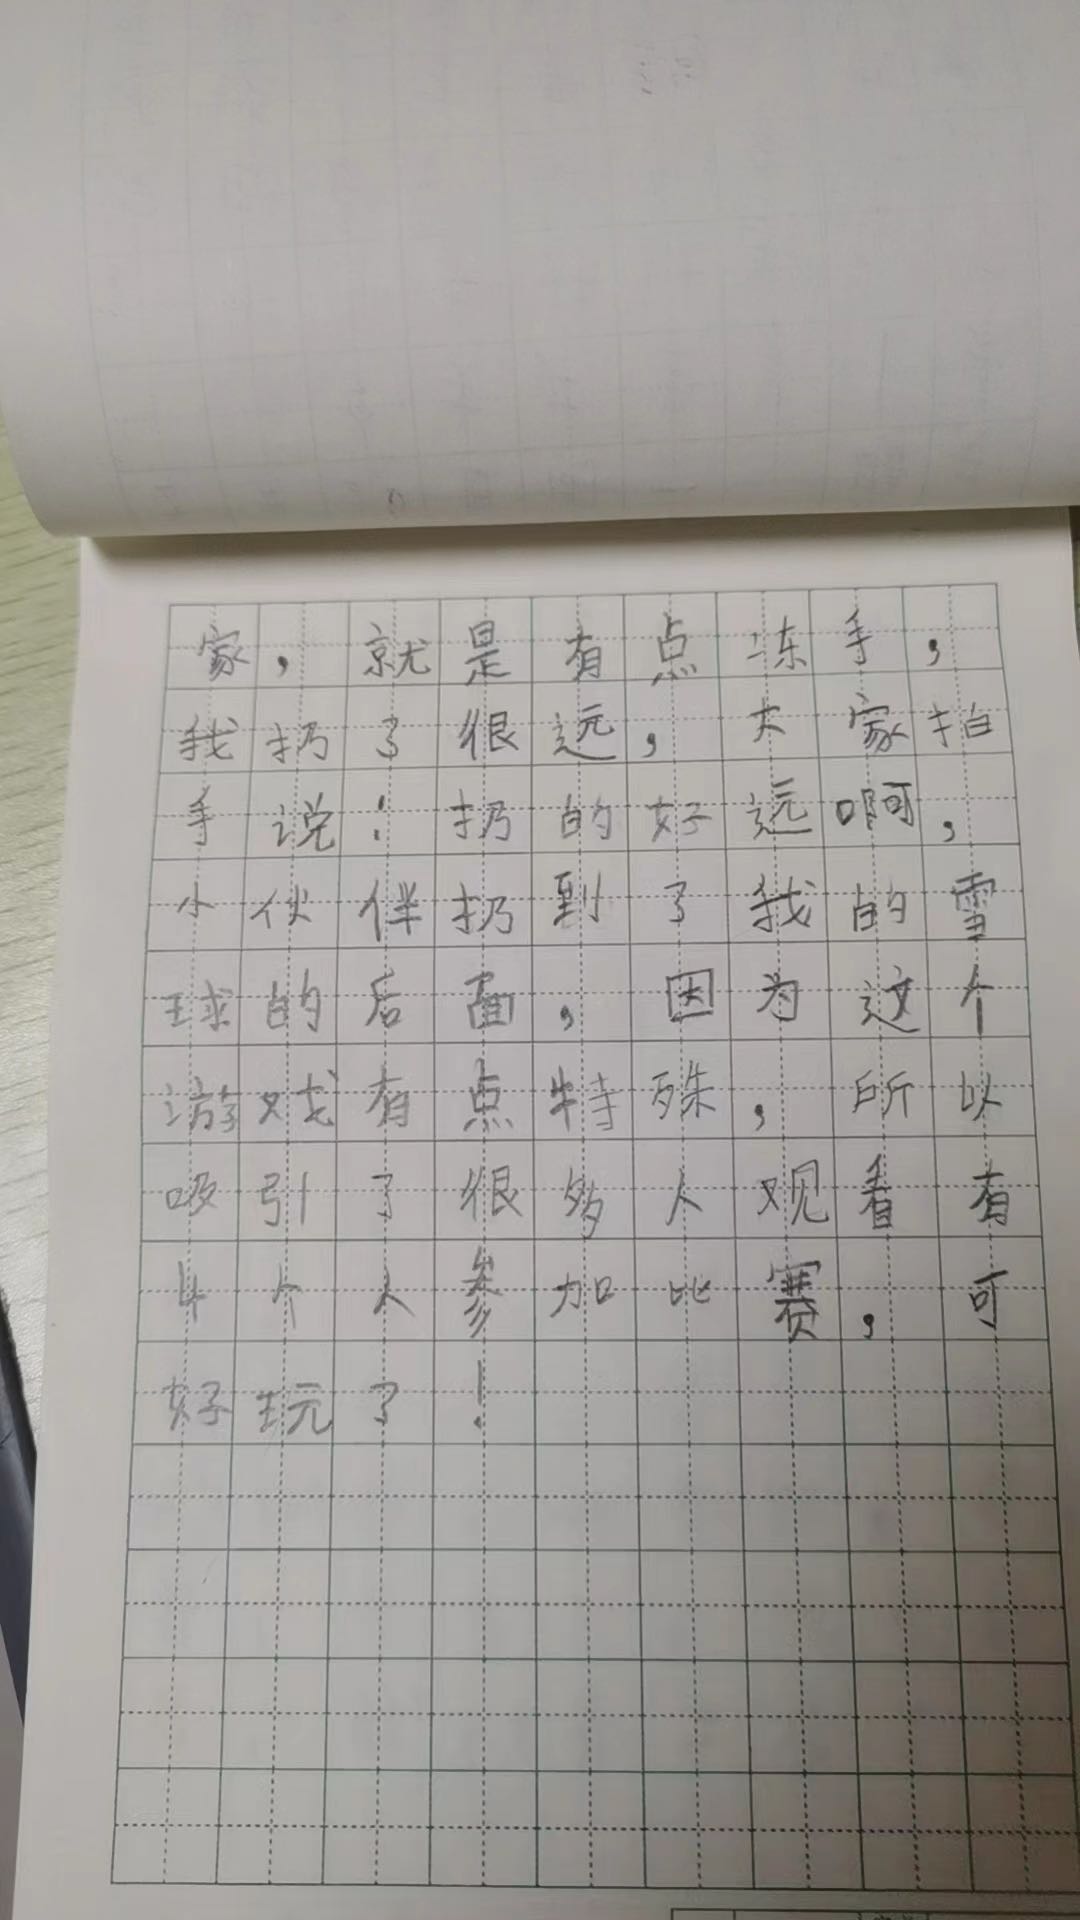 家，就是有点冻手，
我扔了很远，大家拍
手说：扔的好远啊，
小伙伴扔到了我的雪
球的后面，因为这个
游戏有点特殊，所以
吸引了很多人观看有
4个人参加比赛，可
好玩了！